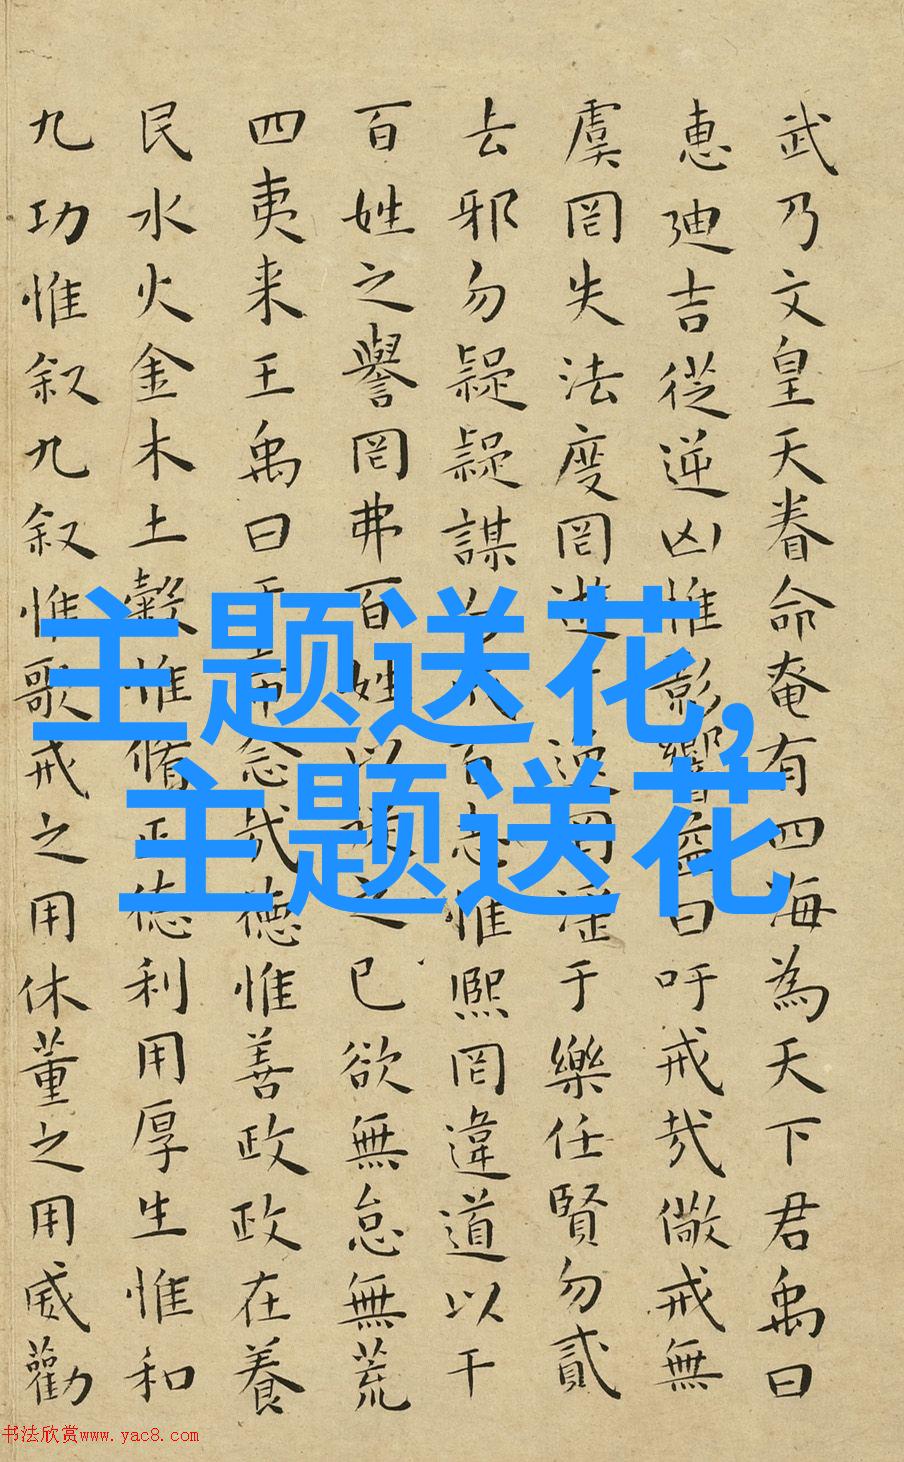 武乃文皇天眷命奄有四海為天下君禹曰
惠迪吉從逆凶惟影響益曰吁戒哉儆戒無
虞罔失法度罔遊逸罔淫于樂任賢勿貳
去邪勿疑疑謀勿成百志惟熙罔違道以干
百姓之譽罔弗百姓以之已欲無怠無荒
四夷来王禹曰帝念哉德惟善政政在養
民水火金木土穀惟脩正德利用厚生惟和
九功惟叙九叙惟歌戒之用休董之用威勸
主题送花,
主题送花
书法欣赏www.yac8.com